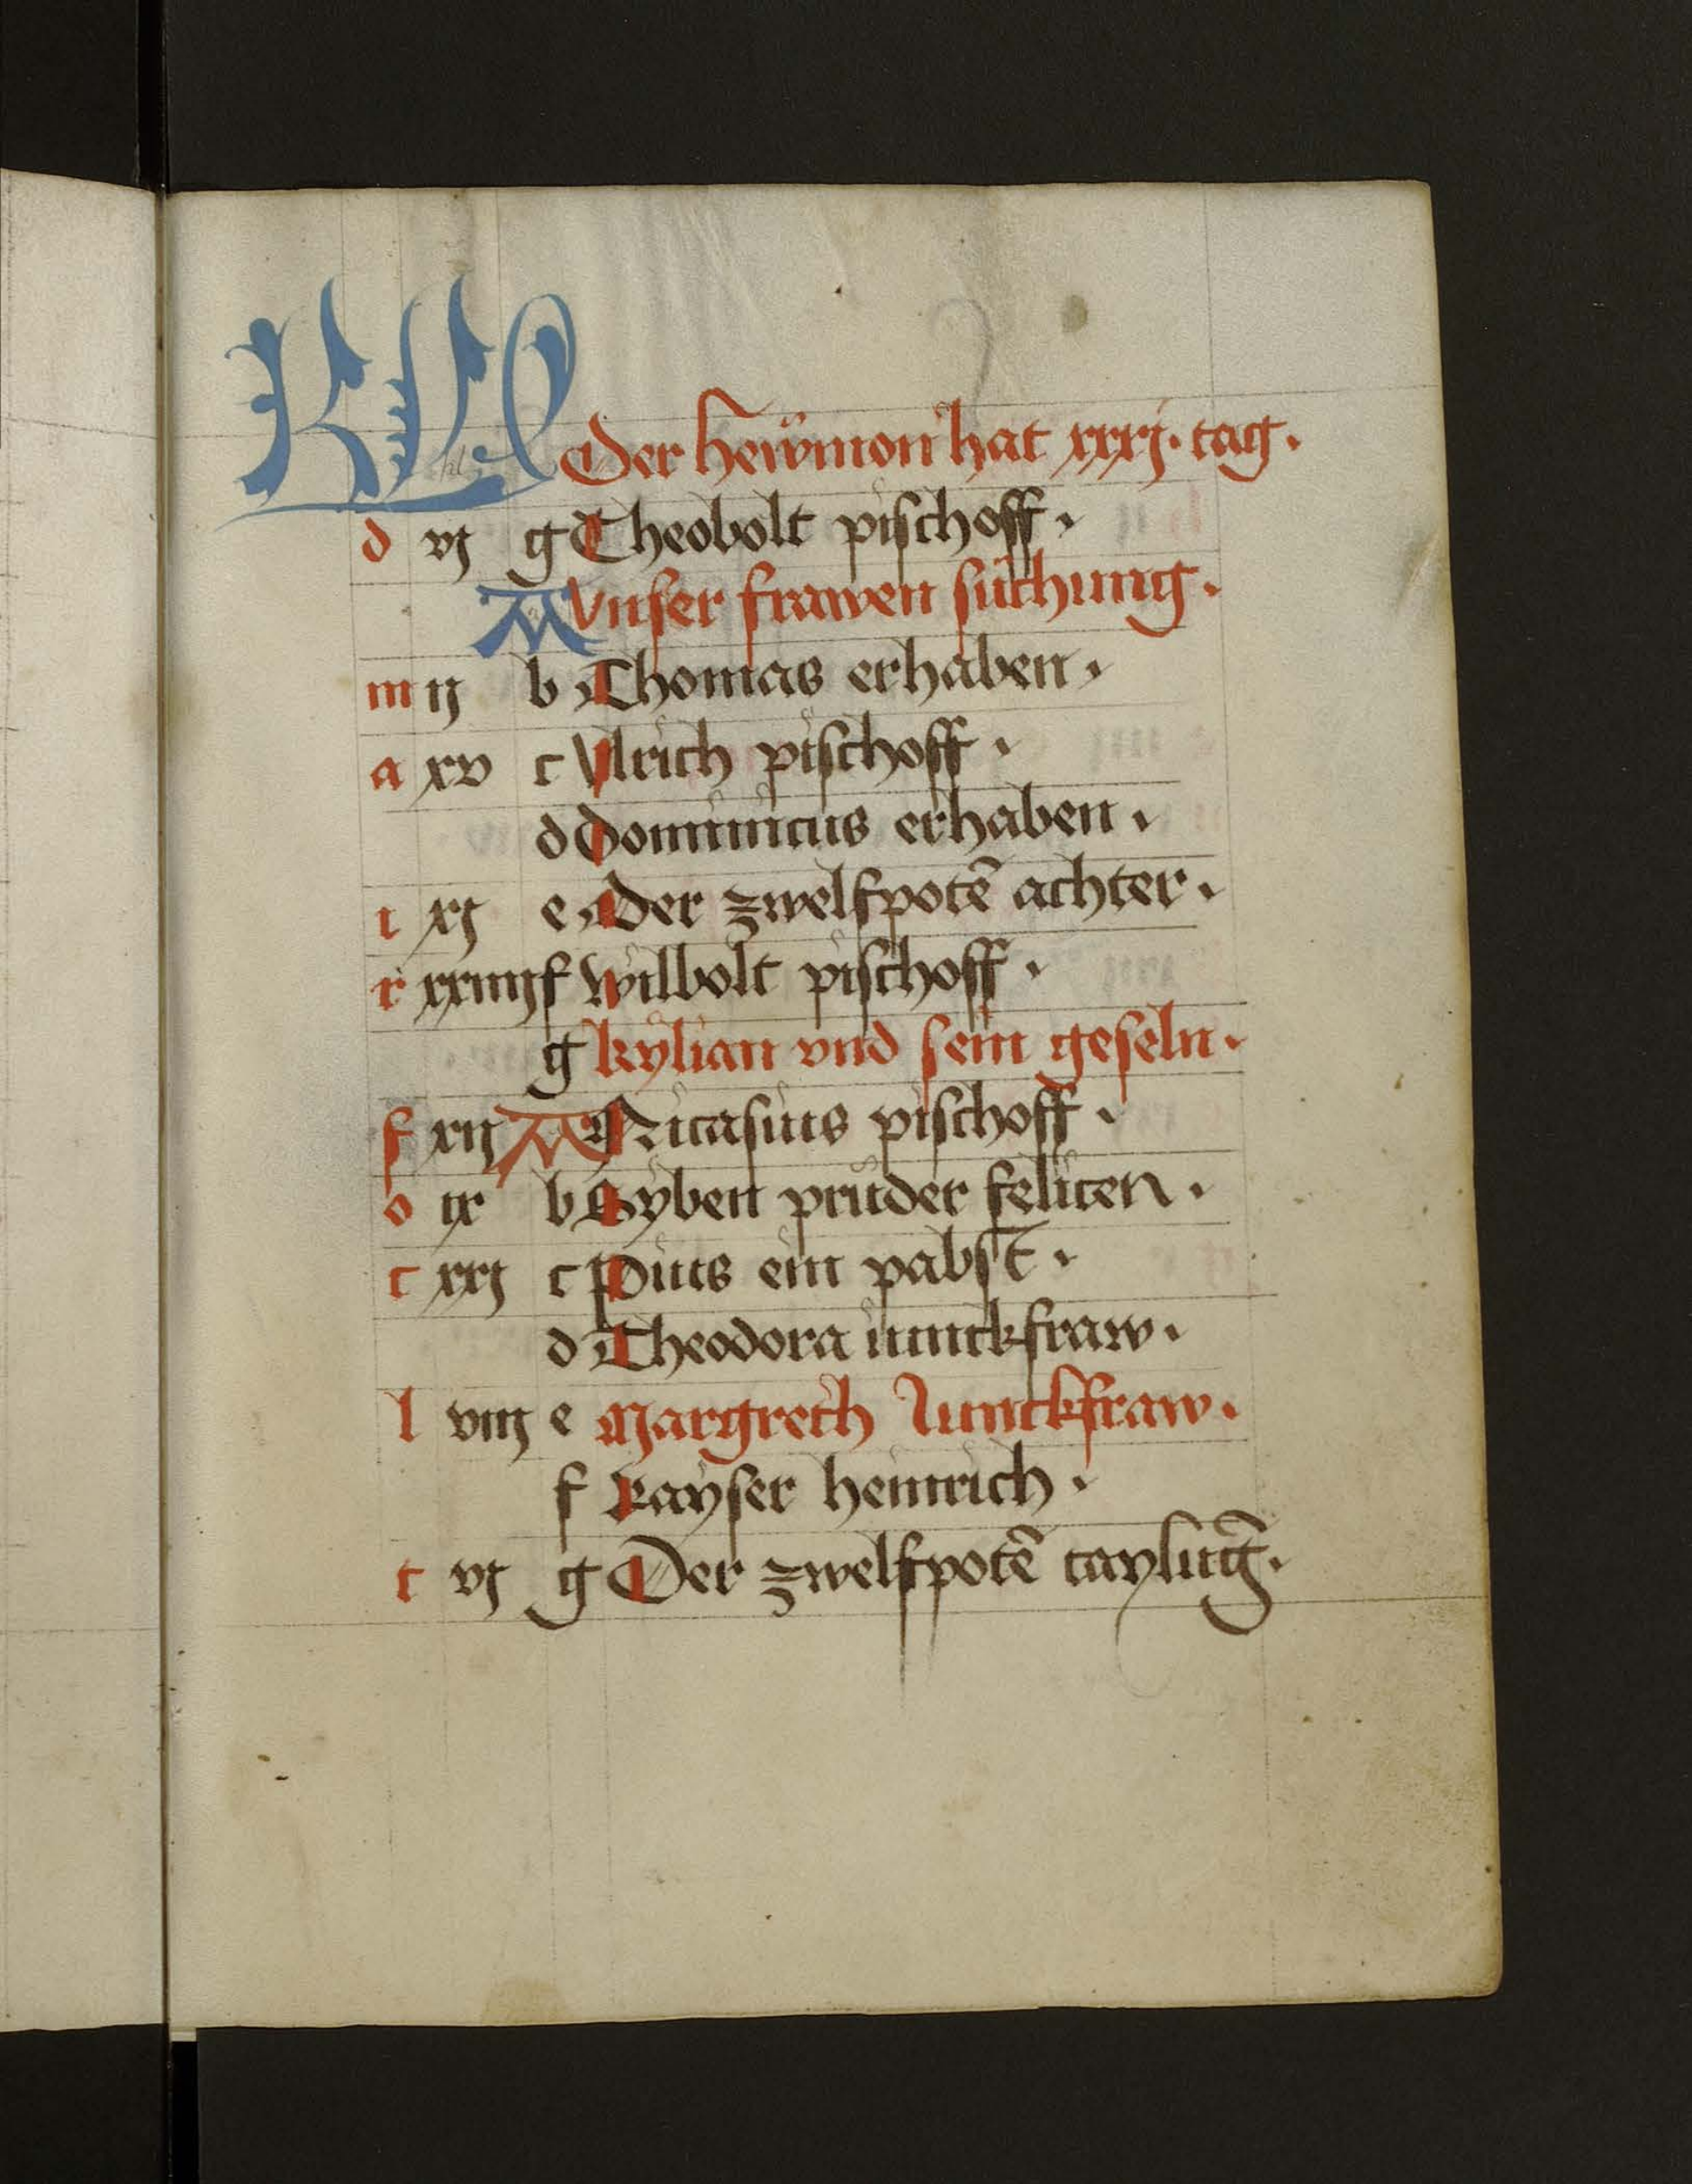 KL Der hewmon hat xxxj. tag.
d vj g Theobolt pischoff.
A Vnser frawen suchung.
m ij b Thomas erhaben.
a xv c Vlrich pischoff.
d Dominicus erhaben.
i xj e Der zwelfpotē achter.
r xxiiij f Wilbolt pischoff.
g kylian vnd sein geseln.
f xij A Nicasius pischoff.
o ix b Syben pruder felicen.
c xxj c Pius ein pabst.
d Theodora iunckfraw.
l viij e Margreth Iunckfraw.
f Kayser heinrich.
t vj g Der zwelfpotē taylūg.